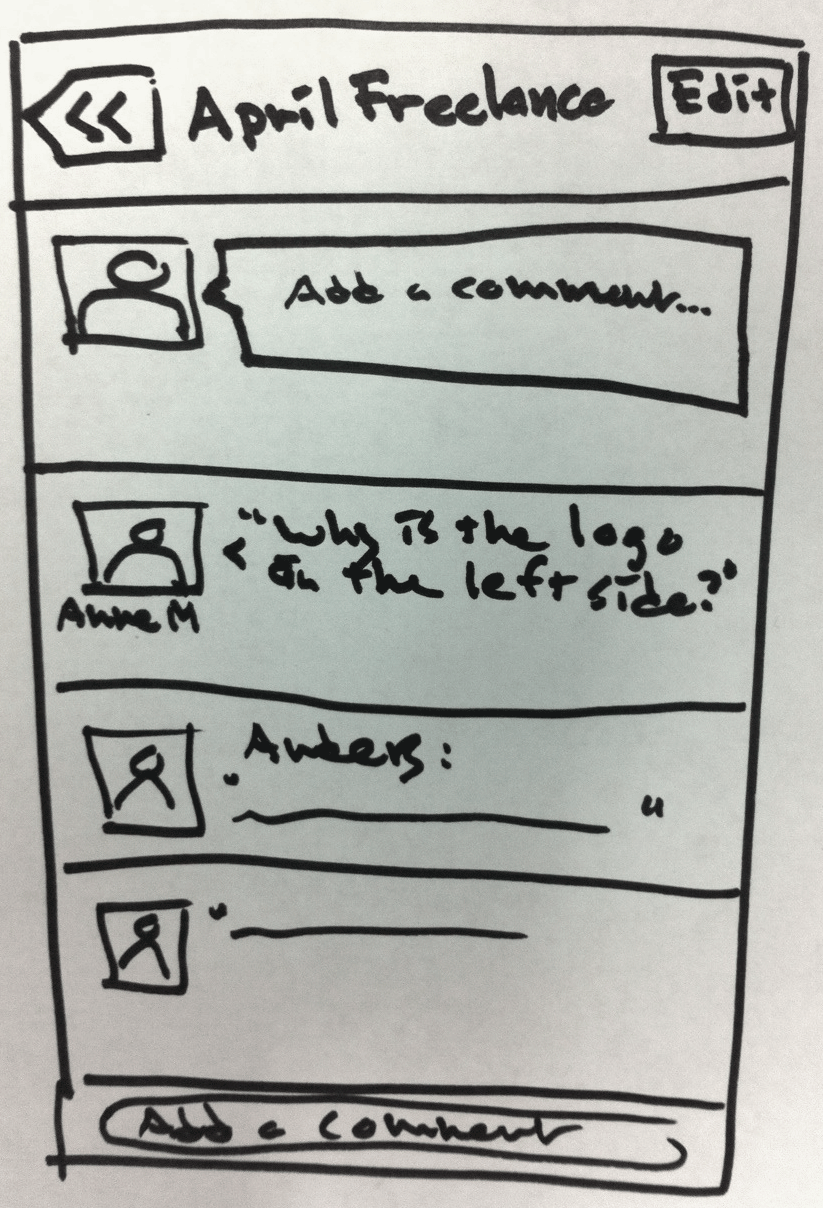 << April Freelance Edit
Add a comment...
"why is the logo
on the left side?"
Anne M
Anders:
" "
"
Add a comment